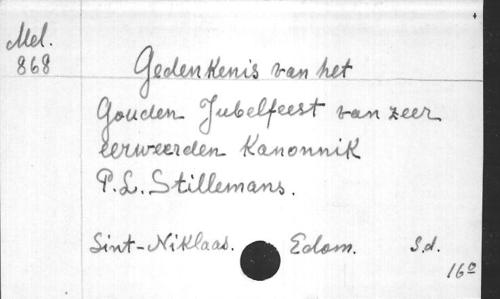 Mel.
868
Gedenkenis van het
Gouden Jubelfeest van zeer
eerweerden Kanonnik
P.L. Stillemans.
Sint-Niklaas. Edom. s.d.
16º